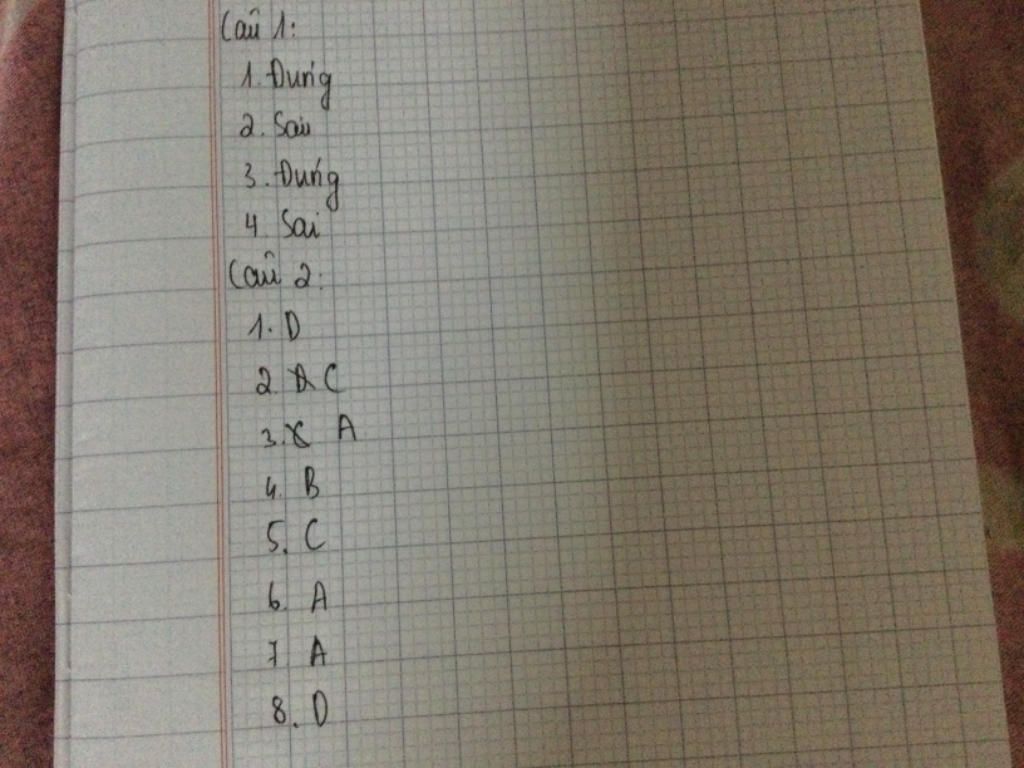 Câu 1:
1. Đúng
2. Sai
3. Đúng
4. Sai
Câu 2:
1. D
2. C
3. A
4. B
5. C
6. A
7 A
8. D